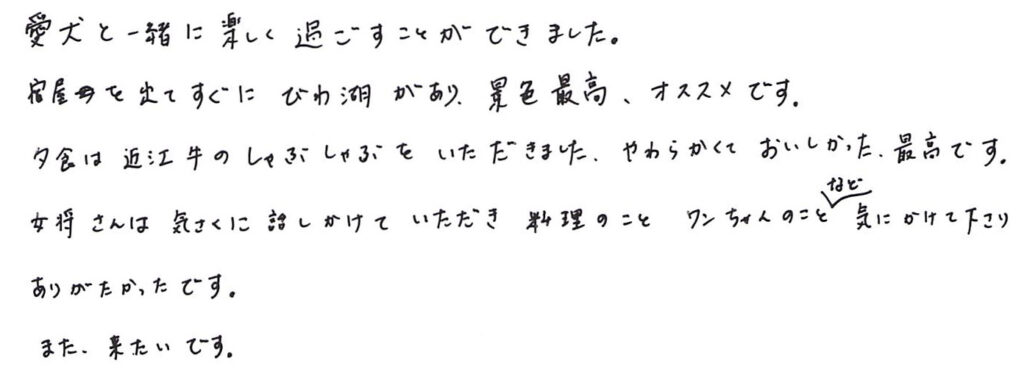 愛犬と一緒に楽しく過ごすことができました。
宿屋を出てすぐに びわ湖があり、景色最高、オススメです。
夕食は近江牛のしゃぶしゃぶをいただきました、やわらかくておいしかった、最高です。
女将さんは気さくに話しかけていただき 料理のこと ワンちゃんのことなど気にかけて下さり
ありがたかったです。
また、来たいです。